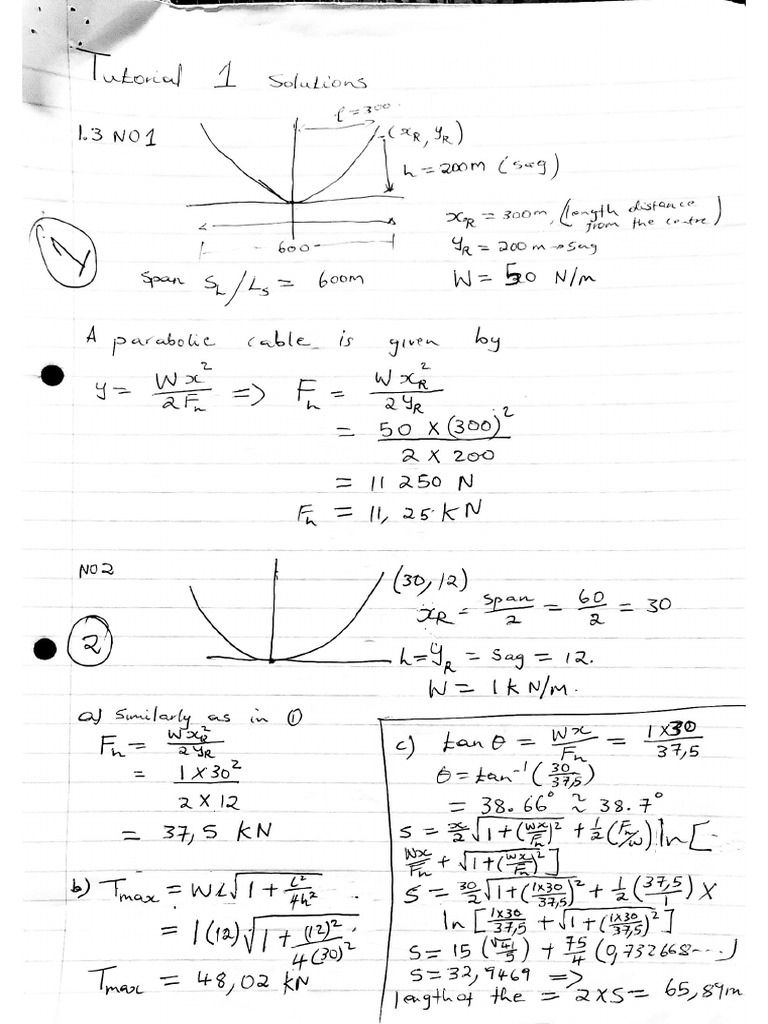 Tutorial 1 Solutions
1.3 NO1
l=300
(xR, yR)
h = 200m (sag)
xR = 300m, (length distance from the centre)
yR = 200m → sag
600
1
span SL/LS = 600m
W = 50 N/m
A parabolic cable is given by
y = Wx²/2Fh => Fh = WxR²/2yR
= 50 X (300)²/2 X 200
= 11 250 N
Fh = 11,25 KN
NO2
(30,12)
xR = span/2 = 60/2 = 30
2
h = yR = sag = 12.
W = 1kN/m.
a) Similarly as in ①
Fh = WxR²/2yR
= 1 X 30²/2 X 12
= 37,5 KN
b) Tmax = WL√(1 + L²/4h²)
= 1(12)√(1 + (12)²/4(30)²)
Tmax = 48,02 KN
c) tanθ = Wx/Fh = 1X30/37,5
θ = tan⁻¹(30/37,5)
= 38.66° ≈ 38.7°
S = x/2√(1+(Wx/Fh)²) + 1/2(Fh/W) ln[
Wx/Fh + √(1+(Wx/Fh)²)]
S = 30/2√(1+(1X30/37,5)²) + 1/2(37,5/1) X
ln[1X30/37,5 + √(1+(1X30/37,5)²)]
S = 15(√41/5) + 75/4(0,732668...)
S = 32,9469 =>
length of the = 2XS = 65,89m